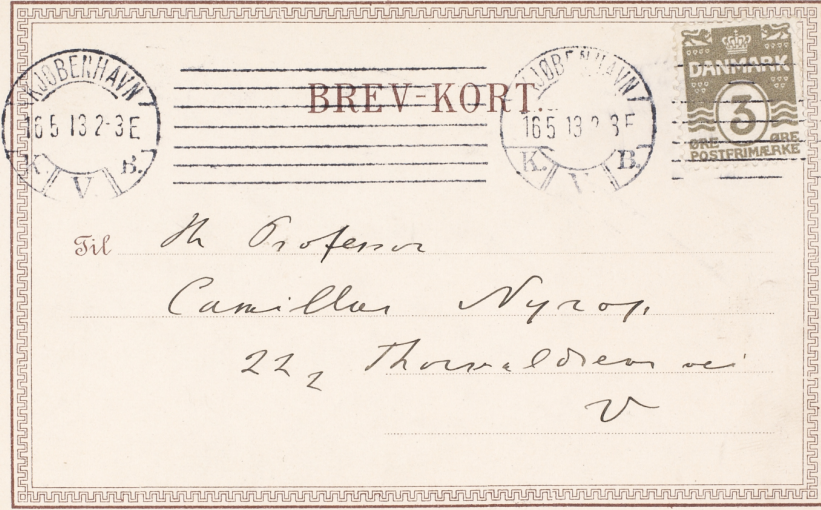 KJØBENHAVN
16 5 13 2-3 E
K. V B.
BREV-KORT
KJØBENHAVN
16 5 13 2 3 E
K. V B.
DANMARK
3
ØRE ØRE
POSTFRIMÆRKE
Til Hr Professor
Camillus Nyrop,
22 2 Thorvaldsens vei
V